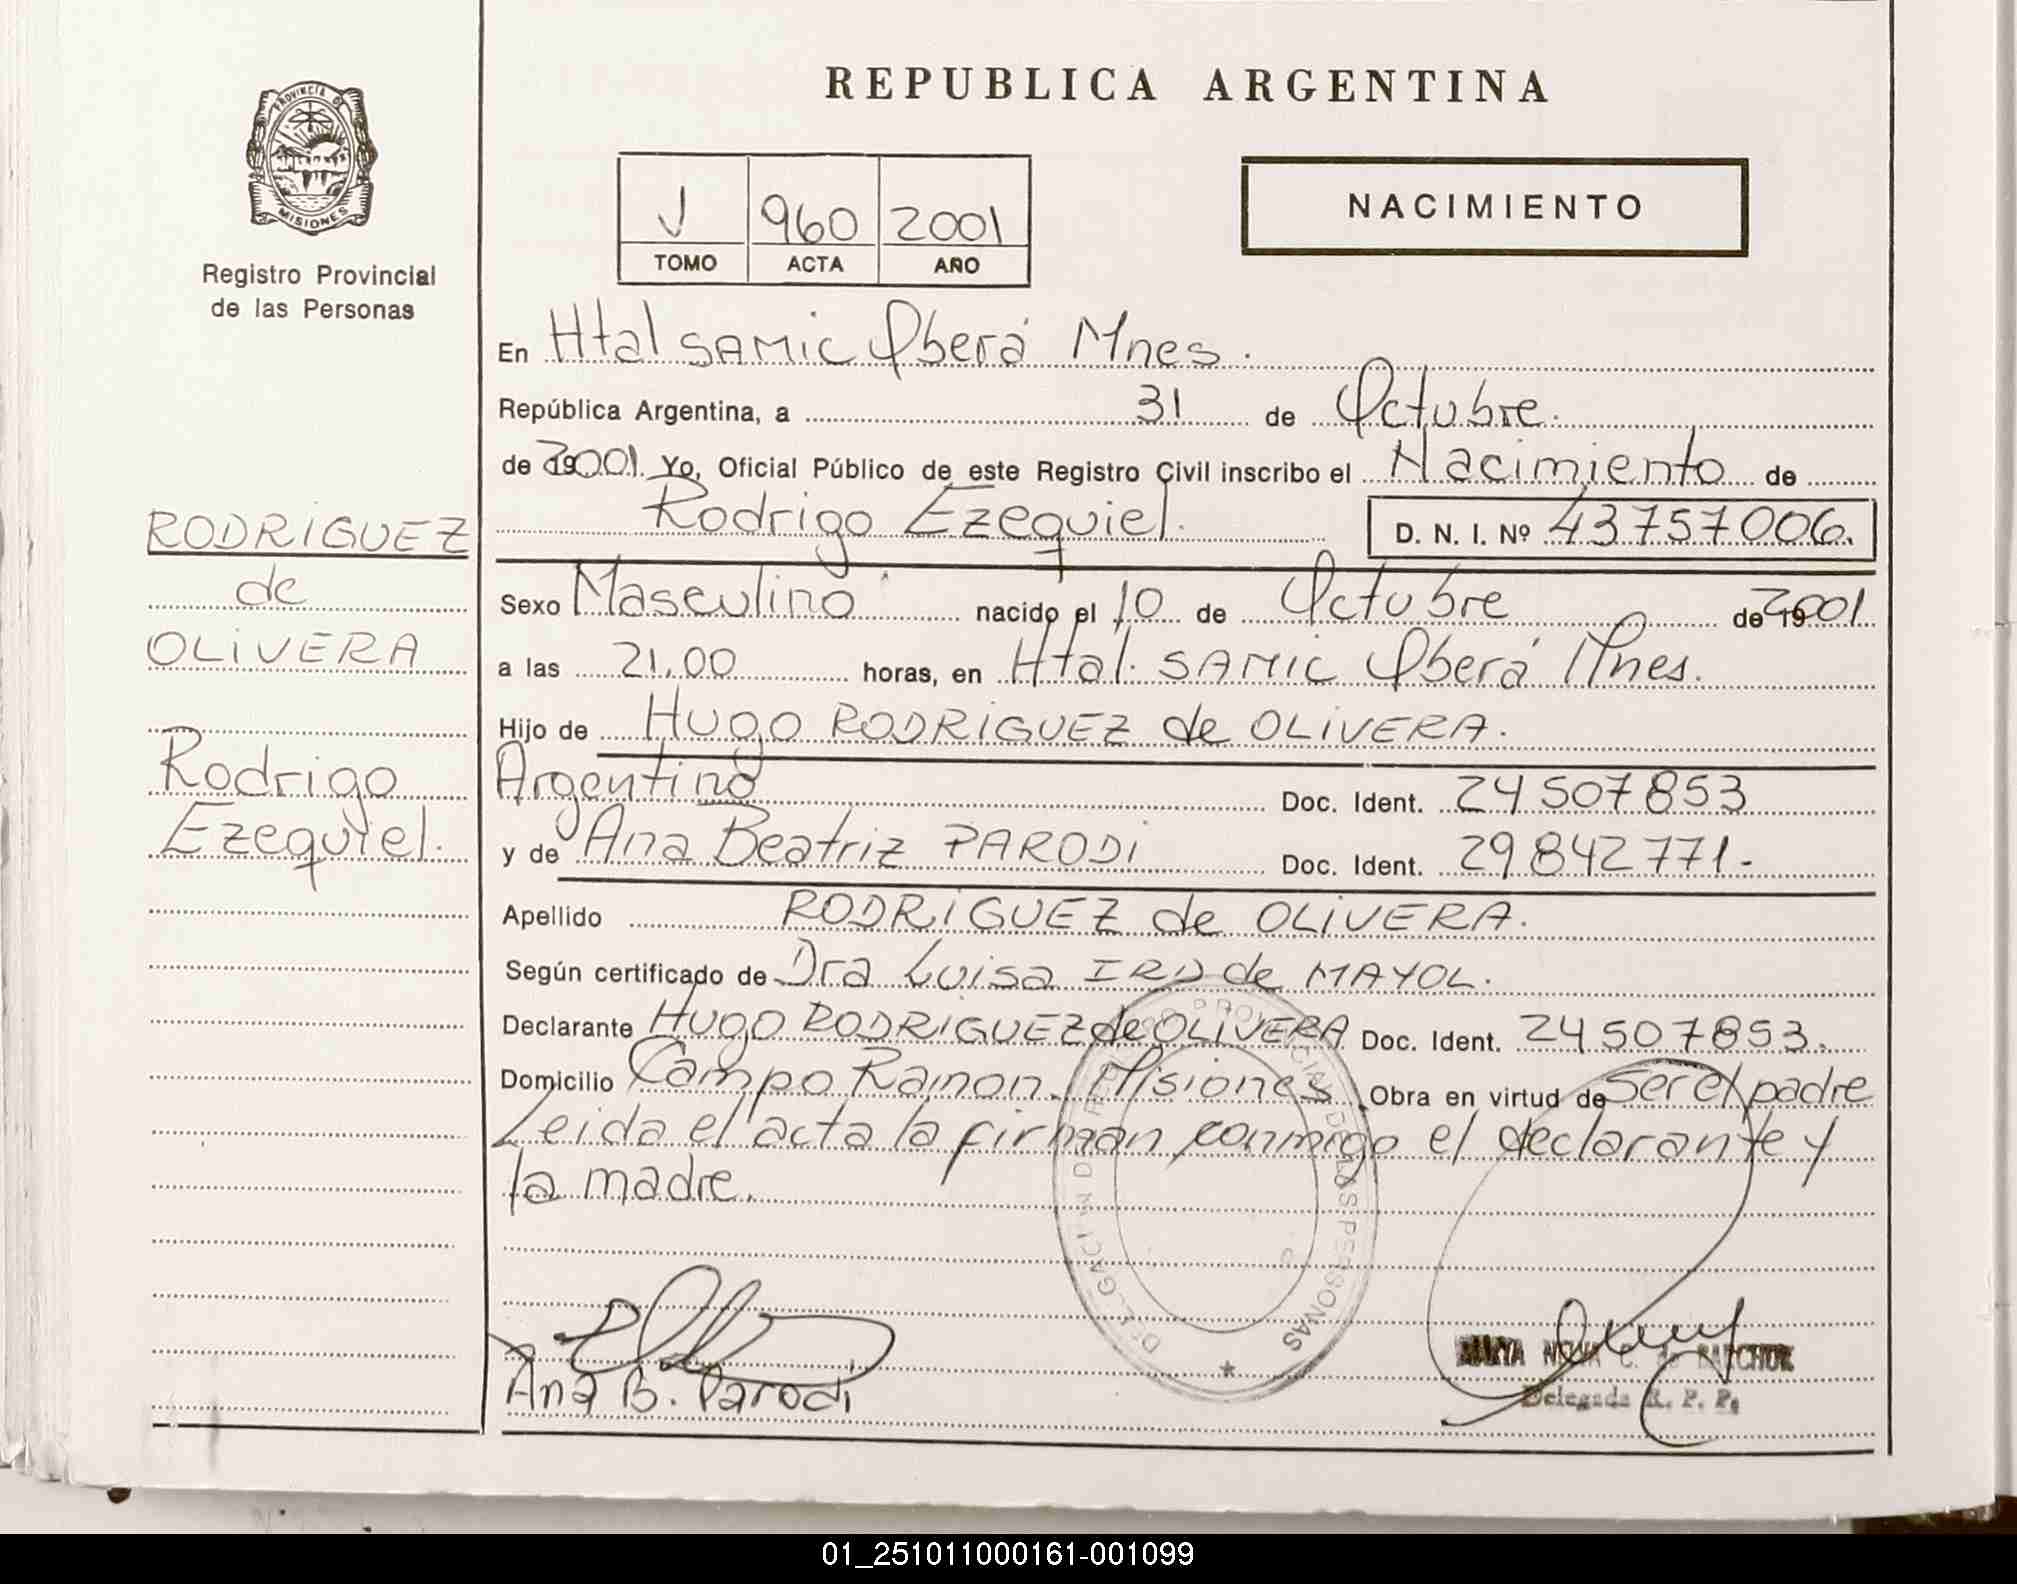 REPUBLICA ARGENTINA
PROVINCIA DE
MISIONES
Registro Provincial
de las Personas
J 960 2001
TOMO ACTA AÑO
NACIMIENTO
En Htal SAMIC Oberá Mnes.
República Argentina, a 31 de Octubre.
de 2001. Yo, Oficial Público de este Registro Civil inscribo el Nacimiento de
Rodrigo Ezequiel. D. N. I. Nº 43757006.
RODRIGUEZ
de
OLIVERA
Rodrigo
Ezequiel.
Sexo Masculino nacido el 10 de Octubre de 2001
a las 21,00 horas, en Htal. SAMIC Oberá Mnes.
Hijo de Hugo RODRIGUEZ de OLIVERA.
Argentino Doc. Ident. 24507853
y de Ana Beatriz PARODI Doc. Ident. 29842771-
Apellido RODRIGUEZ de OLIVERA.
Según certificado de Dra Luisa de MAYOL.
Declarante Hugo RODRIGUEZ de OLIVERA Doc. Ident. 24507853.
Domicilio Campo Ramon. Misiones Obra en virtud de ser el padre
Leida el acta la firman conmigo el declarante y
la madre.
Ana B. Parodi
Delegada R. P. P.
01_251011000161-001099